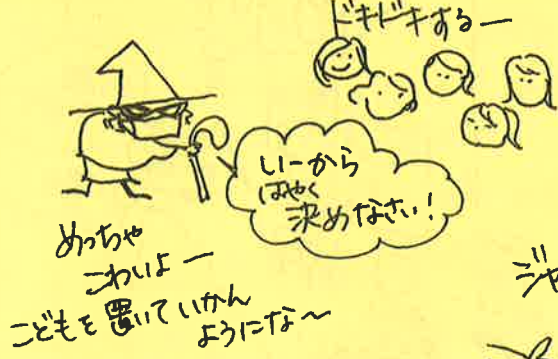 ドキドキするー
いーから
はやく
決めなさい!
めっちゃ
こわいよー
こどもを置いていかん
ようにな〜
ジャ